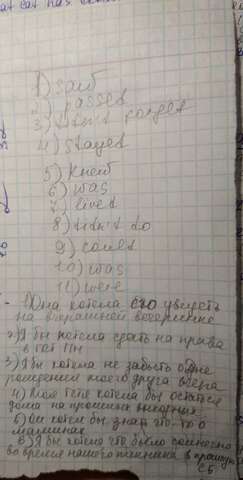 1) said
2) passed
3) didn't forget
4) stayed
5) knew
6) was
7) lived
8) didn't do
9) could
10) was
11) were
1) Она хотела его увидеть
на вчерашней вечеринке
2) Я бы хотела сдать на права
в тот Пн
3) Я бы хотела не забыть о дне
рождении моего друга вчера
4) Моя тетя хотела бы остаться
дома на прошлые выходные
5) Он хотел бы знать что-то о
машинах
6) Я бы хотела что было солнечно
во время нашего пикника в прошлую
сб